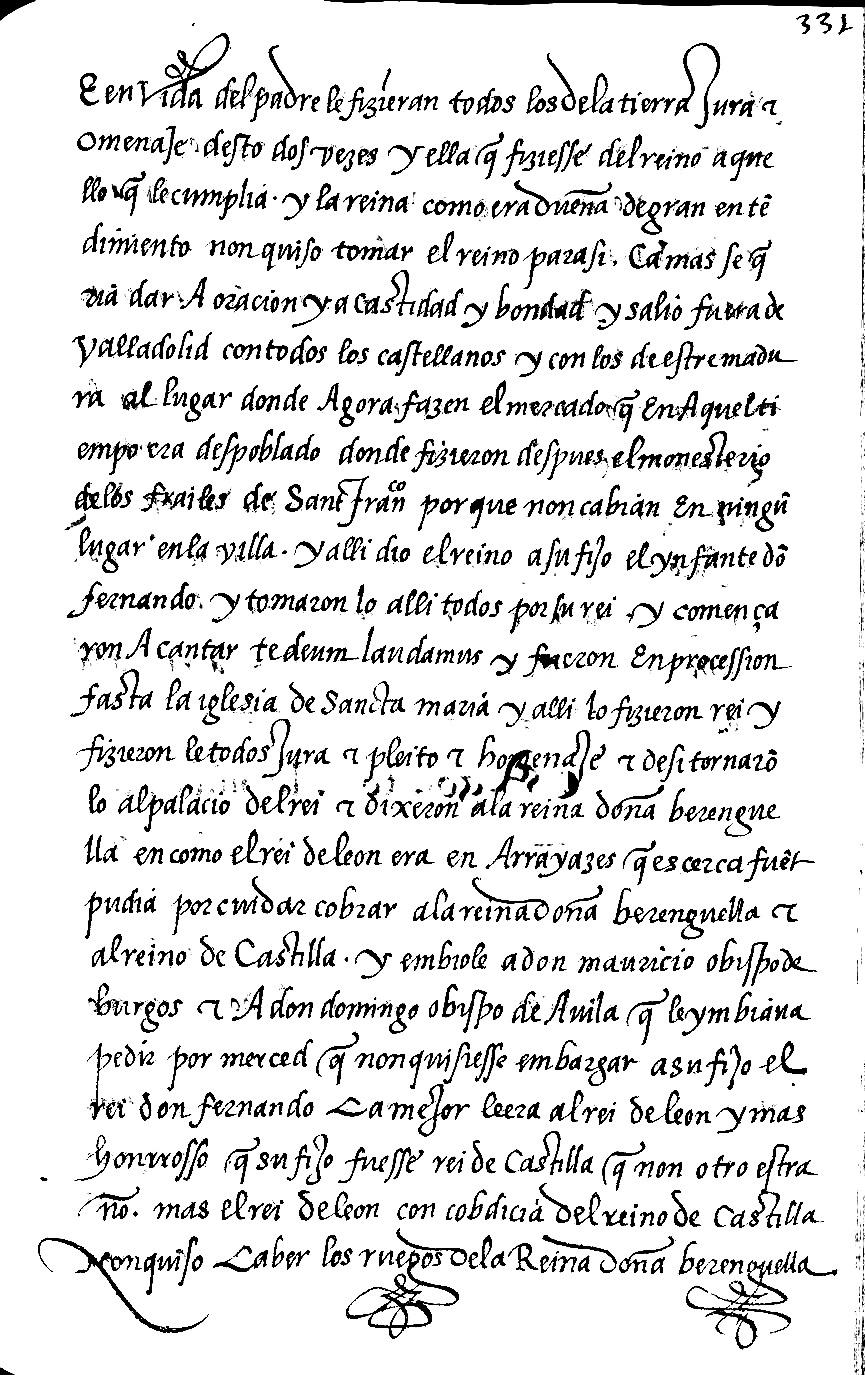 332
E en vida del padre le fizieran todos los de la tierra Jura ⁊
omenaJe desto dos vezes y ella q̃ fiziesse del reino aque
llo q̃ le cumplia. y la reina como era dueña de gran entẽ
dimiento non quiso tomar el reino para si. Ca mas se q̃
ria dar A oracion y a castidad y bondad y salio fuera de
Valladolid con todos los castellanos y con los de estremadu
ra al lugar donde Agora fazen el mercado q̃ En Aquel ti
empo era despoblado donde fizieron despues el monesterio
de los frailes de Sant Franco porque non cabian En ningũ
lugar en la villa. y alli dio el reino a su fiJo el ynfante dõ
fernando. y tomaron lo alli todos por su rei y comença
ron A cantar te deum laudamus y fueron En procession
fasta la iglesia de Sancta maria y alli lo fizieron rei y
fizieron le todos Jura ⁊ pleito ⁊ homenaJe ⁊ desi tornarõ
lo al palacio del rei ⁊ dixeron a la reina doña berengue
lla en como el rei de leon era en Arrayazes q̃ es cerca fuẽt
pudia por cuidar cobrar a la reina doña berenguella ⁊
al reino de Castilla. y embiole a don mauricio obispo de
burgos ⁊ A don domingo obispo de Auila q̃ le ymbiaua
pedir por merced q̃ non quisiesse embargar a su fiJo el
rei don fernando Ca meJor le era al rei de leon y mas
honrrosso q̃ su fiJo fuesse rei de Castilla q̃ non otro estra
ño. mas el rei de leon con cobdicia del reino de Castilla
non quiso Caber los ruegos de la Reina doña berenguella.